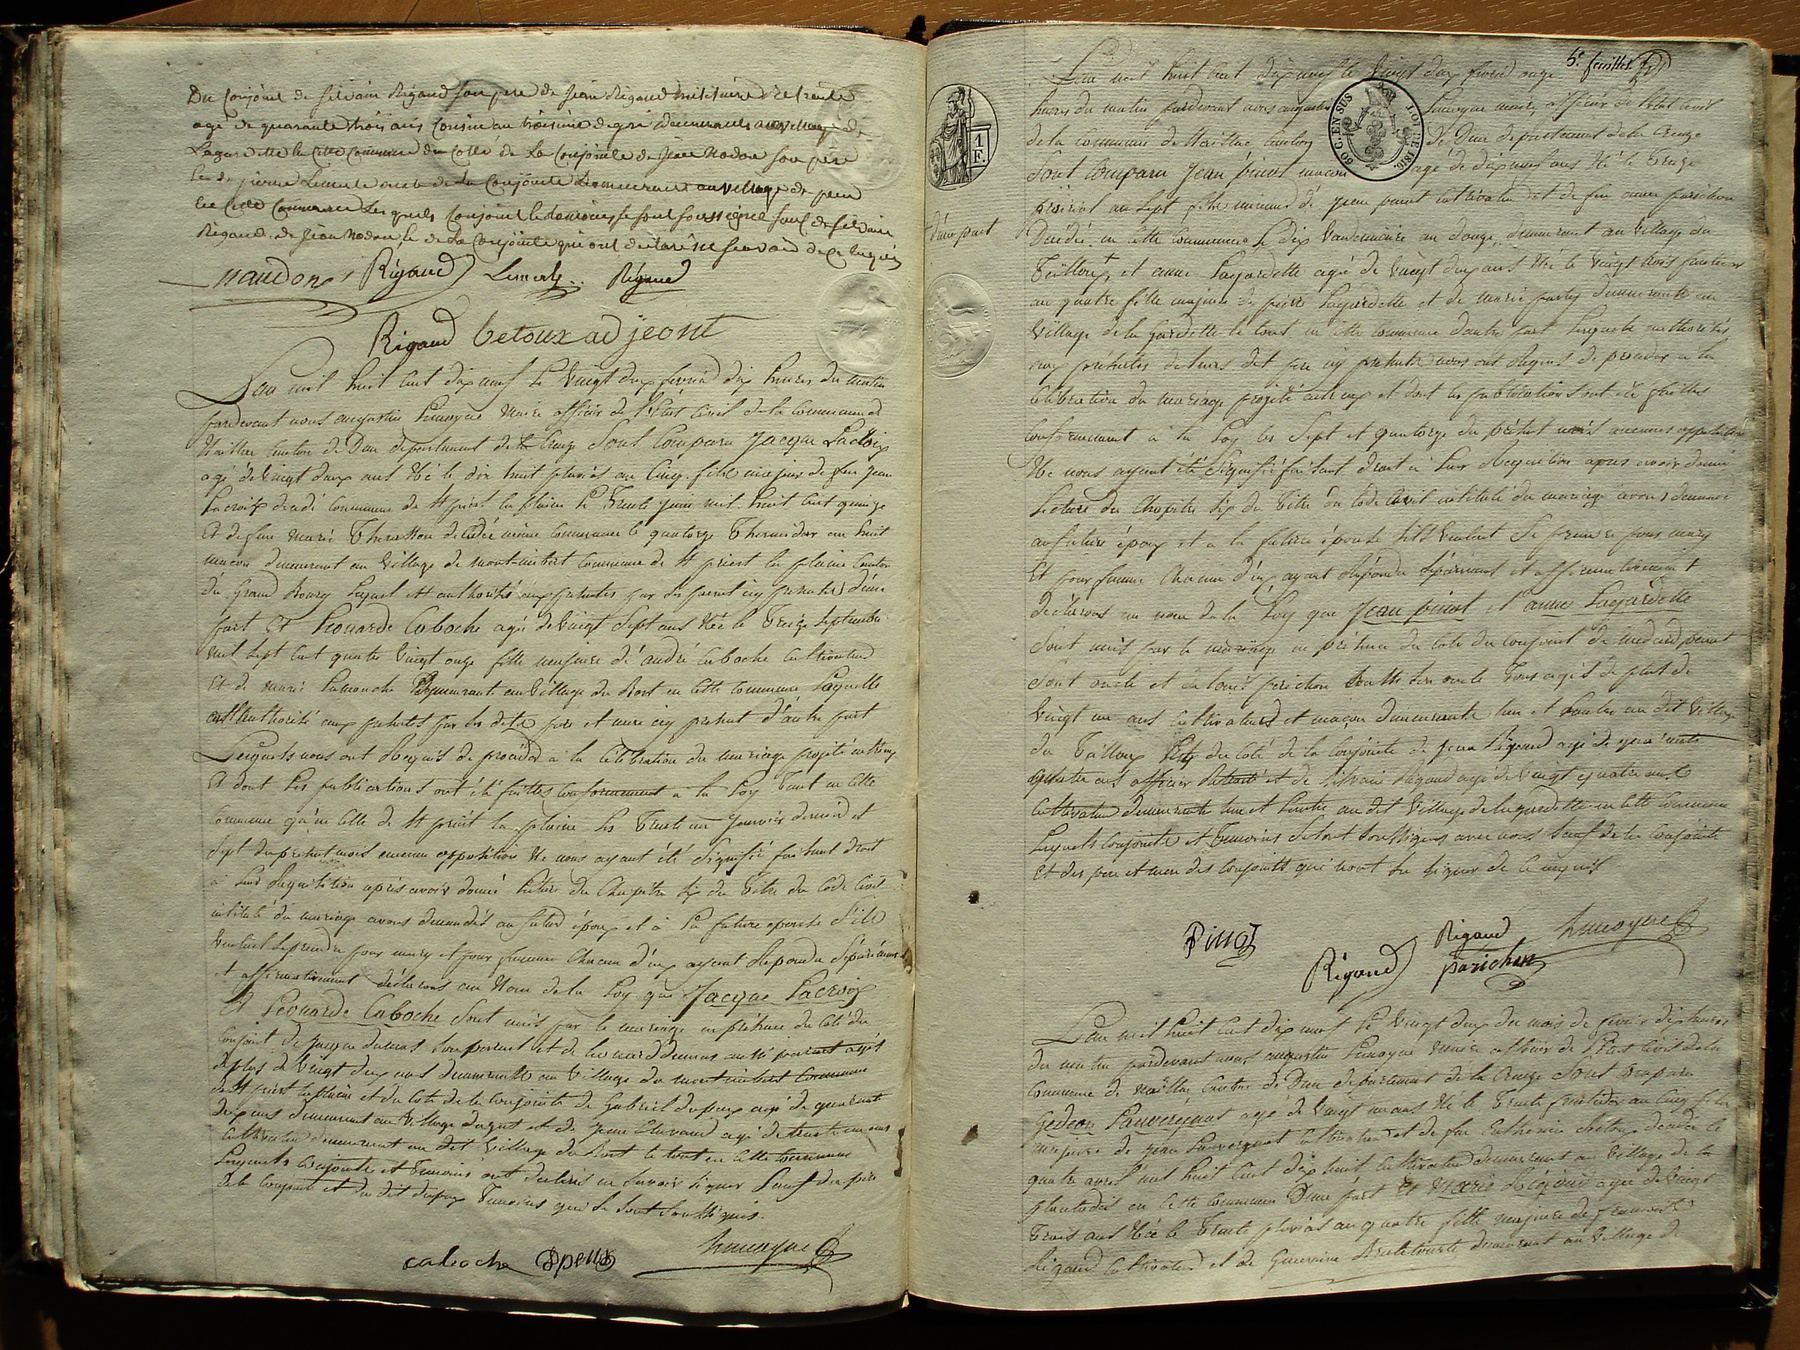 Du Conjoint de Silvain Rigaud son pere de Jean Rigaud militaire Retraité
agé de quarante trois ans Cousin au troisième degré demeurants au village de
Lagardette Cette Commune du Cotté de La Conjointe de Jean Nadon son père
et de pierre Limerle oncle de la Conjointe demeurant au village de
Cette Commune Les quels Conjoint et temoins se sont soussignés sauf de Silvain
Rigaud, de Jean Nadon, et de La Conjointe qui ont declaré ne savoir de ce enquis
naudon Rigaud Limerle Rigaud
Rigaud Betoux adjeont
L'an mil huit cent dix neuf le vingt deux fevrier dix heures du matin
pardevant nous augustin Limoyne maire officier de l'état civil de la Commune de
Naillac Canton de Dun departement de la Creuze Sont Comparu Jacque Lacroix
agé de vingt deux ans Né le dix huit pluvios an Cinq fils majeur de feu Jean
Lacroix décédé Commune de St priest la plaine le Trente juin mil huit cent quinze
Et de feue Marie Therasson décédée même Commune le quatorze Thermidor an huit
macon demeurant au village de mont-imbert Commune de St priest la plaine Canton
du Grand Bourg Lequel et authorité aux presentes par ses parents icy presents d'une
part Et Léonarde Caboche agée de vingt Sept ans Née le Treize Septembre
mil Sept Cent quatre vingt onze fille majeure d'andré Caboche Cultivateur
Et de marie Lamouche demeurant au village du Bost en Cette Commune Laquelle
est authorité aux presentes par les dits père et mere icy present d'autre part
Lesquels nous ont Requis de procéder a la Célébration du mariage projeté entreux
Et dont les publications ont été faittes Conformement a la Loy Tant en Cette
Commune qu'en Celle de St priest la plaine les Trente un janvier dernier et
Sept du present mois aucune opposition Ne nous ayant été Signifié faisant droit
à leur Requisition après avoir donné lecture du Chapitre Six du Titre du Code Civil
intitulé du mariage avons demandés au futur époux et à la future épouse S'ils
veulent Se prendre pour mary et pour femme Chacun d'eux ayant Repondu Séparément
et affirmativement déclarons au Nom de la Loy que Jacque Lacroix
Et Léonarde Caboche Sont unis par le mariage en présence du Coté du
Conjoint de Jacque dumas Son parent et de Leonard dumas aussi parent agés
de plus de vingt deux ans demeurants au village du mont imbert Commune
de St priest la plaine et du Coté de la Conjointe de Gabriel dupeux agé de quarante
dix ans demeurant au village et de Jean agé de trente un ans
Cultivateur demeurant au dit village du Bost le tout en Cette Commune
Lesquels Conjoints et Temoins ont declarés ne Savoir Signer Sauf du père
de la Conjointe et du dit dupeux Temoins qui Se Sont Soussignés.
caboche Dpeux Limoyne
5e feuillet
L'an mil huit Cent dix neuf le vingt deux fevrier onze
heures du matin pardevant nous augustin Limoyne maire officier de l'état civil
de la Commune de Naillac Canton de Dun departement de la Creuze
Sont Comparu Jean pinot macon agé de dix neuf ans Né le Treize
prairial an Sept fils mineur de Jean pinot Cultivateur et de feue anne parichon
Décédée en Cette Commune Le dix vendemiaire an douze, demeurant au village du
d'une part
Teilloux et anne Lagardette agée de vingt deux ans Née le vingt trois
an quatre fille majeure de pierre Lagardette et de marie demeurante au
village de la gardette le tout en Cette Commune d'autre part Lesquels authorités
aux presentes de leurs dit père icy presents nous ont Requis de proceder a la
célébration du mariage projeté entreux et dont les publications ont été faittes
Conformement à la Loy les Sept et quatorze du présent mois aucunes opposition
Ne nous ayant été Signifié faisant droit à leur Requisition apres avoir donné
lecture du Chapitre Six du Titre du Code Civil intitulé du mariage avons demandé
au futur époux et a la future épouse S'ils veulent Se prendre pour mary
Et pour femme Chacun d'eux ayant Répondu Séparément et affirmativement
declarons au nom de la Loy que Jean pinot et anne Lagardette
Sont unis par le mariage en présence du Coté du Conjoint de pinot
Sont oncle et de parichon Son oncle Tous agés de plus de
vingt un ans Cultivateurs et macon demeurants l'un et l'autre au dit village
du Teilloux Et du Coté de la Conjointe de Jean Rigaud agé de quarante
quatre ans officier Retraité et de Silvain Rigaud agé de vingt quatre ans
Cultivateur demeurants l'un et l'autre au dit village de lagardette en Cette Commune
Lesquels Conjoints et Temoins Se sont Soussignés avec nous Sauf de la Conjointe
Et des pere et mere des Conjoints qui n'ont Su Signer de Ce enquis
Pinot Rigaud Rigaud parichon Limoyne
L'an mil huit Cent dix neuf le vingt deux du mois de fevrier dix heures
du matin pardevant nous augustin Limoyne maire officier de l'état Civil de la
Commune de Naillac Canton de Dun departement de la Creuze Sont Comparu
Gédeon Pauvergnat agé de vingt un ans Né le Trente an Cinq fils
majeur de Jean Pauvergnat Cultivateur et de feue Catherine décédée le
quatre avril mil huit Cent dix huit Cultivateur demeurant au village de la
plantades en Cette Commune D'une part Et Marie Rigaud agée de vingt
Trois ans Née le Trente pluvios an quatre fille majeure de
Rigaud Cultivateur et de demeurant au village de
1 F.
60 C. EN SUS
LOI DE 1816.